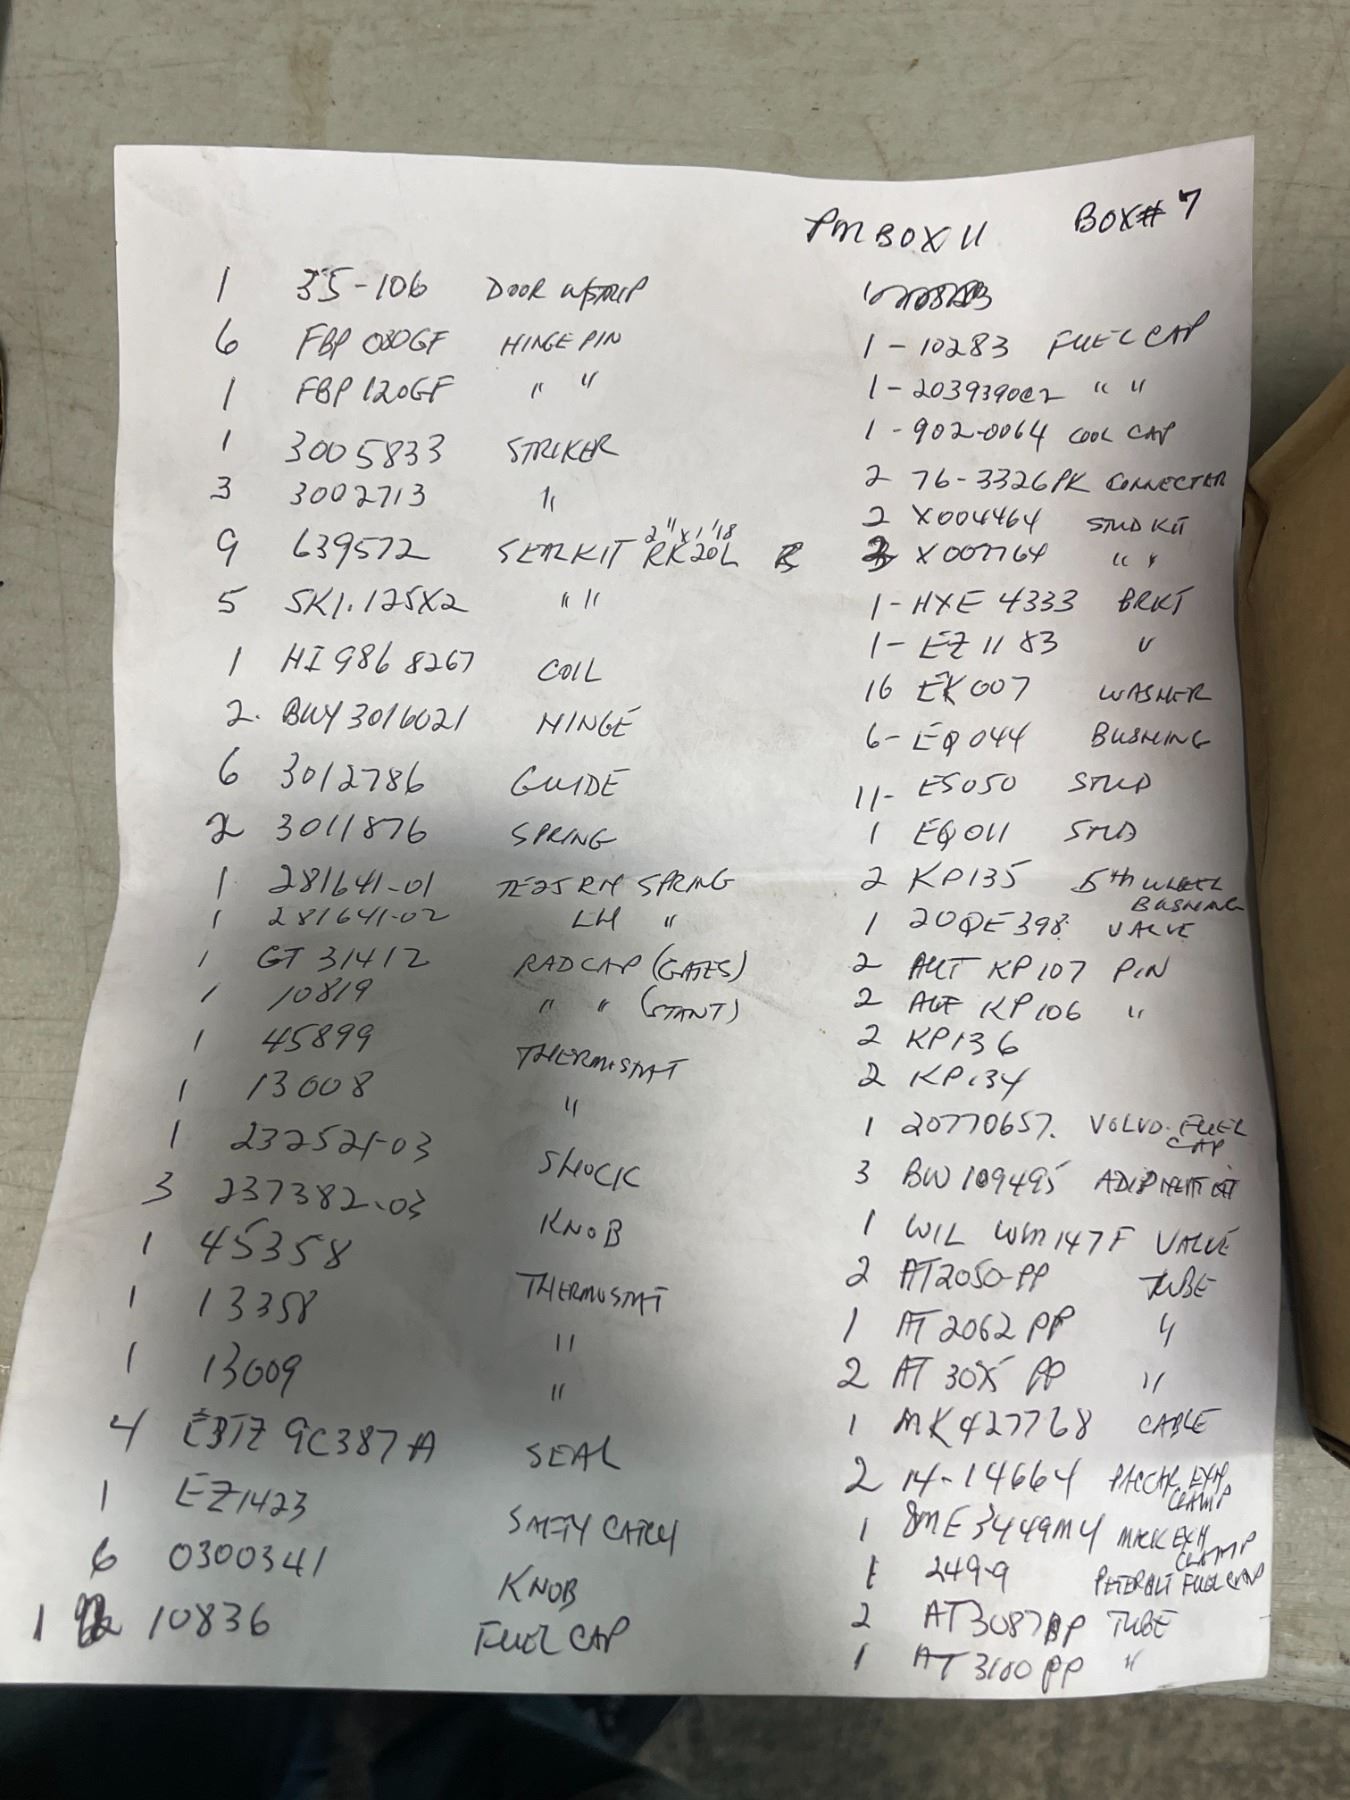 PM BOX 11 BOX# 7
1 35-106 DOOR W/STRIP
6 FBP 080GF HINGE PIN
1 FBP 120GF " "
1 3005833 STRIKER
3 3002713 "
9 639572 SEAL KIT 2" x 1 1/8 RK20L
5 SK1.125X2 " "
1 HI 986 8267 COIL
2. BWY 3016021 HINGE
6 3012786 GUIDE
2 3011876 SPRING
1 281641-01 TE25 RH SPRING
1 281641-02 LH "
1 GT 31412 RAD CAP (GATES)
1 10819 " " (STANT)
1 45899 THERMOSTAT
1 13008 "
1 232521-03 SHOCK
3 237382-03 KNOB
1 45358 THERMOSTAT
1 13358 "
1 13009 "
4 EBTZ 9C387A SEAL
1 EZ1423 SAFTY CATCH
6 0300341 KNOB
1 10836 FUEL CAP
1 - 10283 FUEL CAP
1 - 2039390C2 " "
1 - 902-0064 COOL CAP
2 76-3326PK CONNECTER
2 X004464 STUD KIT
X007764 " "
1 - HXE 4333 BRKT
1 - EZ 1183 "
16 EK007 WASHER
6 - EQ044 BUSHING
11 - ES050 STUD
1 EQ011 STUD
2 KP135 5th WHEEL
BUSHING
1 20QE398 VALVE
2 AUT KP107 PIN
2 AUT KP106 "
2 KP136
2 KP134
1 20770657. VOLVO FUEL
CAP
3 BW 109495
1 WIL WM147F VALVE
2 AT2050-PP TUBE
1 AT 2062 PP "
2 AT PP "
1 MK427768 CABLE
2 14-14664 PACCAR EXH
CLAMP
1 8ME3449M4 MACK EXH
CLAMP
1 249-9 PETERBLT FUEL CAP
2 AT3087PP TUBE
1 AT 3100 PP "